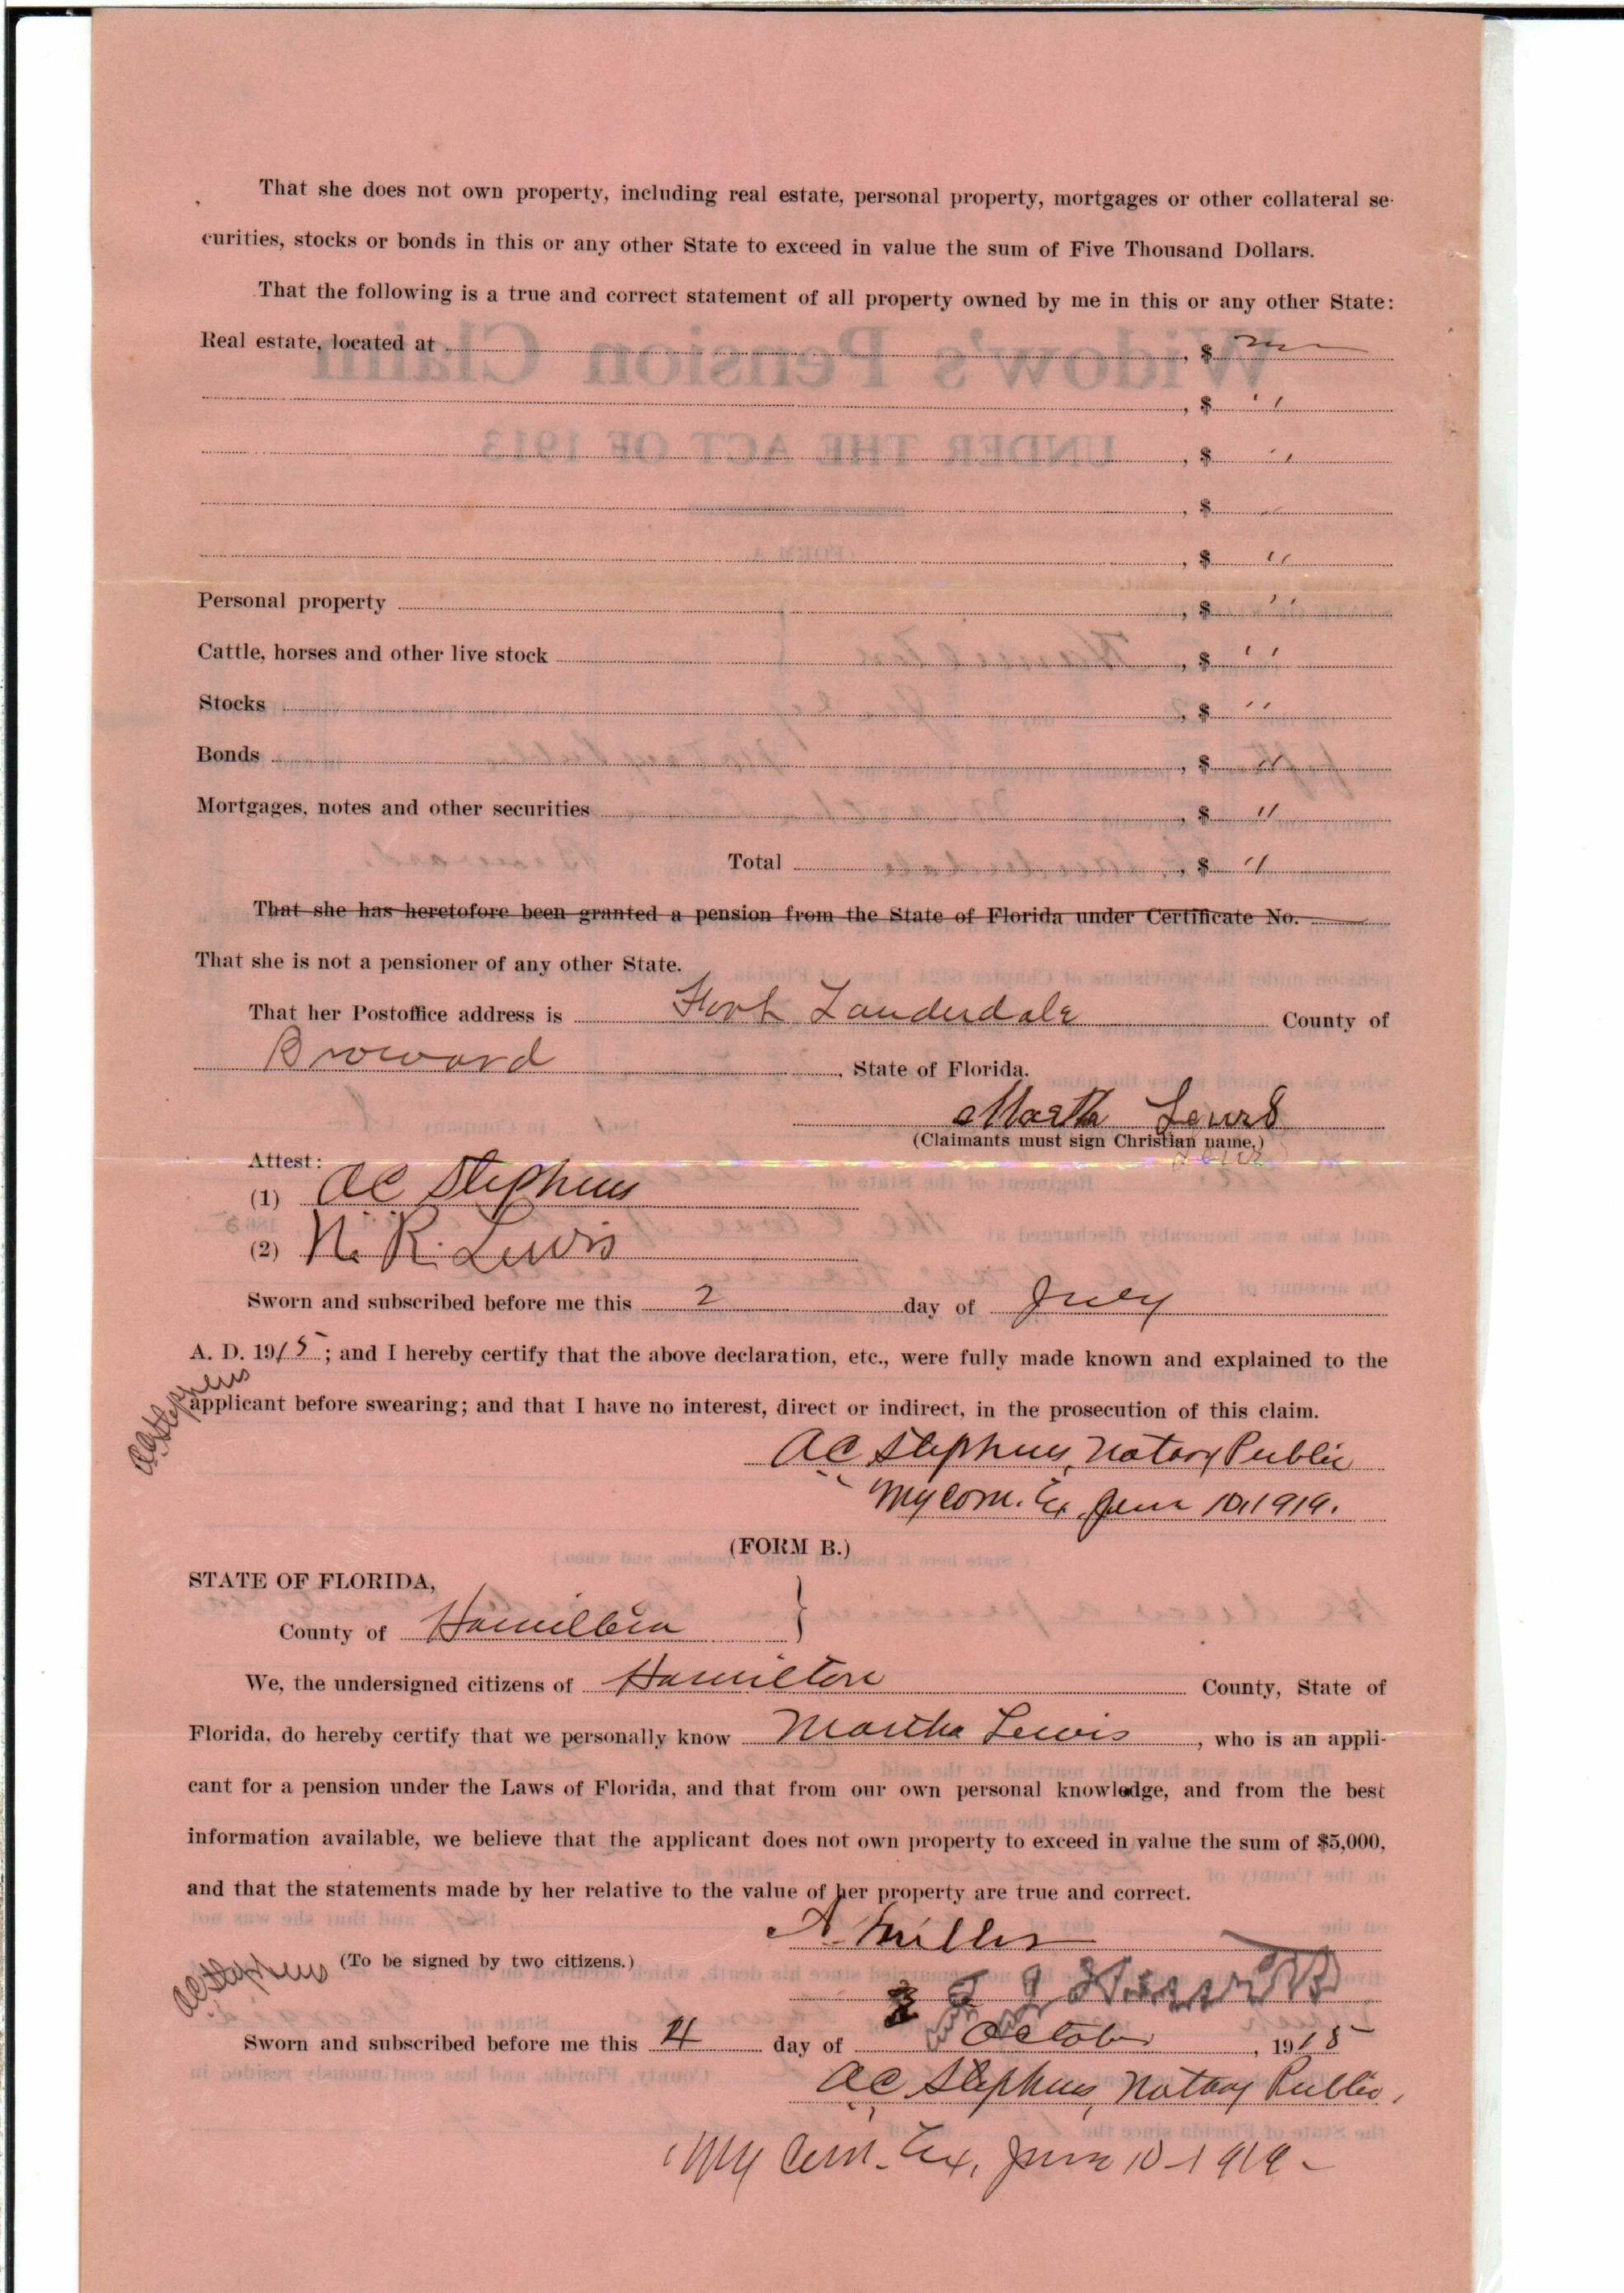 That she does not own property, including real estate, personal property, mortgages or other collateral se-
curities, stocks or bonds in this or any other State to exceed in value the sum of Five Thousand Dollars.
That the following is a true and correct statement of all property owned by me in this or any other State:
Real estate, located at , $
, $ "
, $ "
, $ "
, $ "
Personal property , $ "
Cattle, horses and other live stock , $ "
Stocks , $ "
Bonds , $ "
Mortgages, notes and other securities , $ "
Total , $ "
That she has heretofore been granted a pension from the State of Florida under Certificate No.
That she is not a pensioner of any other State.
That her Postoffice address is Fort Lauderdale County of
Broward , State of Florida.
Martha Lewis
(Claimants must sign Christian name.)
Attest:
(1) A C Stephens
(2) N. R. Lewis
Sworn and subscribed before me this 2 day of July
A. D. 1915; and I hereby certify that the above declaration, etc., were fully made known and explained to the
A C Stephens
applicant before swearing; and that I have no interest, direct or indirect, in the prosecution of this claim.
A C Stephens, Notary Public
My Com. Ex. June 10, 1919.
(FORM B.)
STATE OF FLORIDA,
County of Hamilton }
We, the undersigned citizens of Hamilton County, State of
Florida, do hereby certify that we personally know Martha Lewis, who is an appli-
cant for a pension under the Laws of Florida, and that from our own personal knowledge, and from the best
information available, we believe that the applicant does not own property to exceed in value the sum of $5,000,
and that the statements made by her relative to the value of her property are true and correct.
A. Miller
A C Stephens
(To be signed by two citizens.)
Sworn and subscribed before me this 4 day of October, 1915
A C Stephens, Notary Public,
My Com. Ex. June 10-1919-